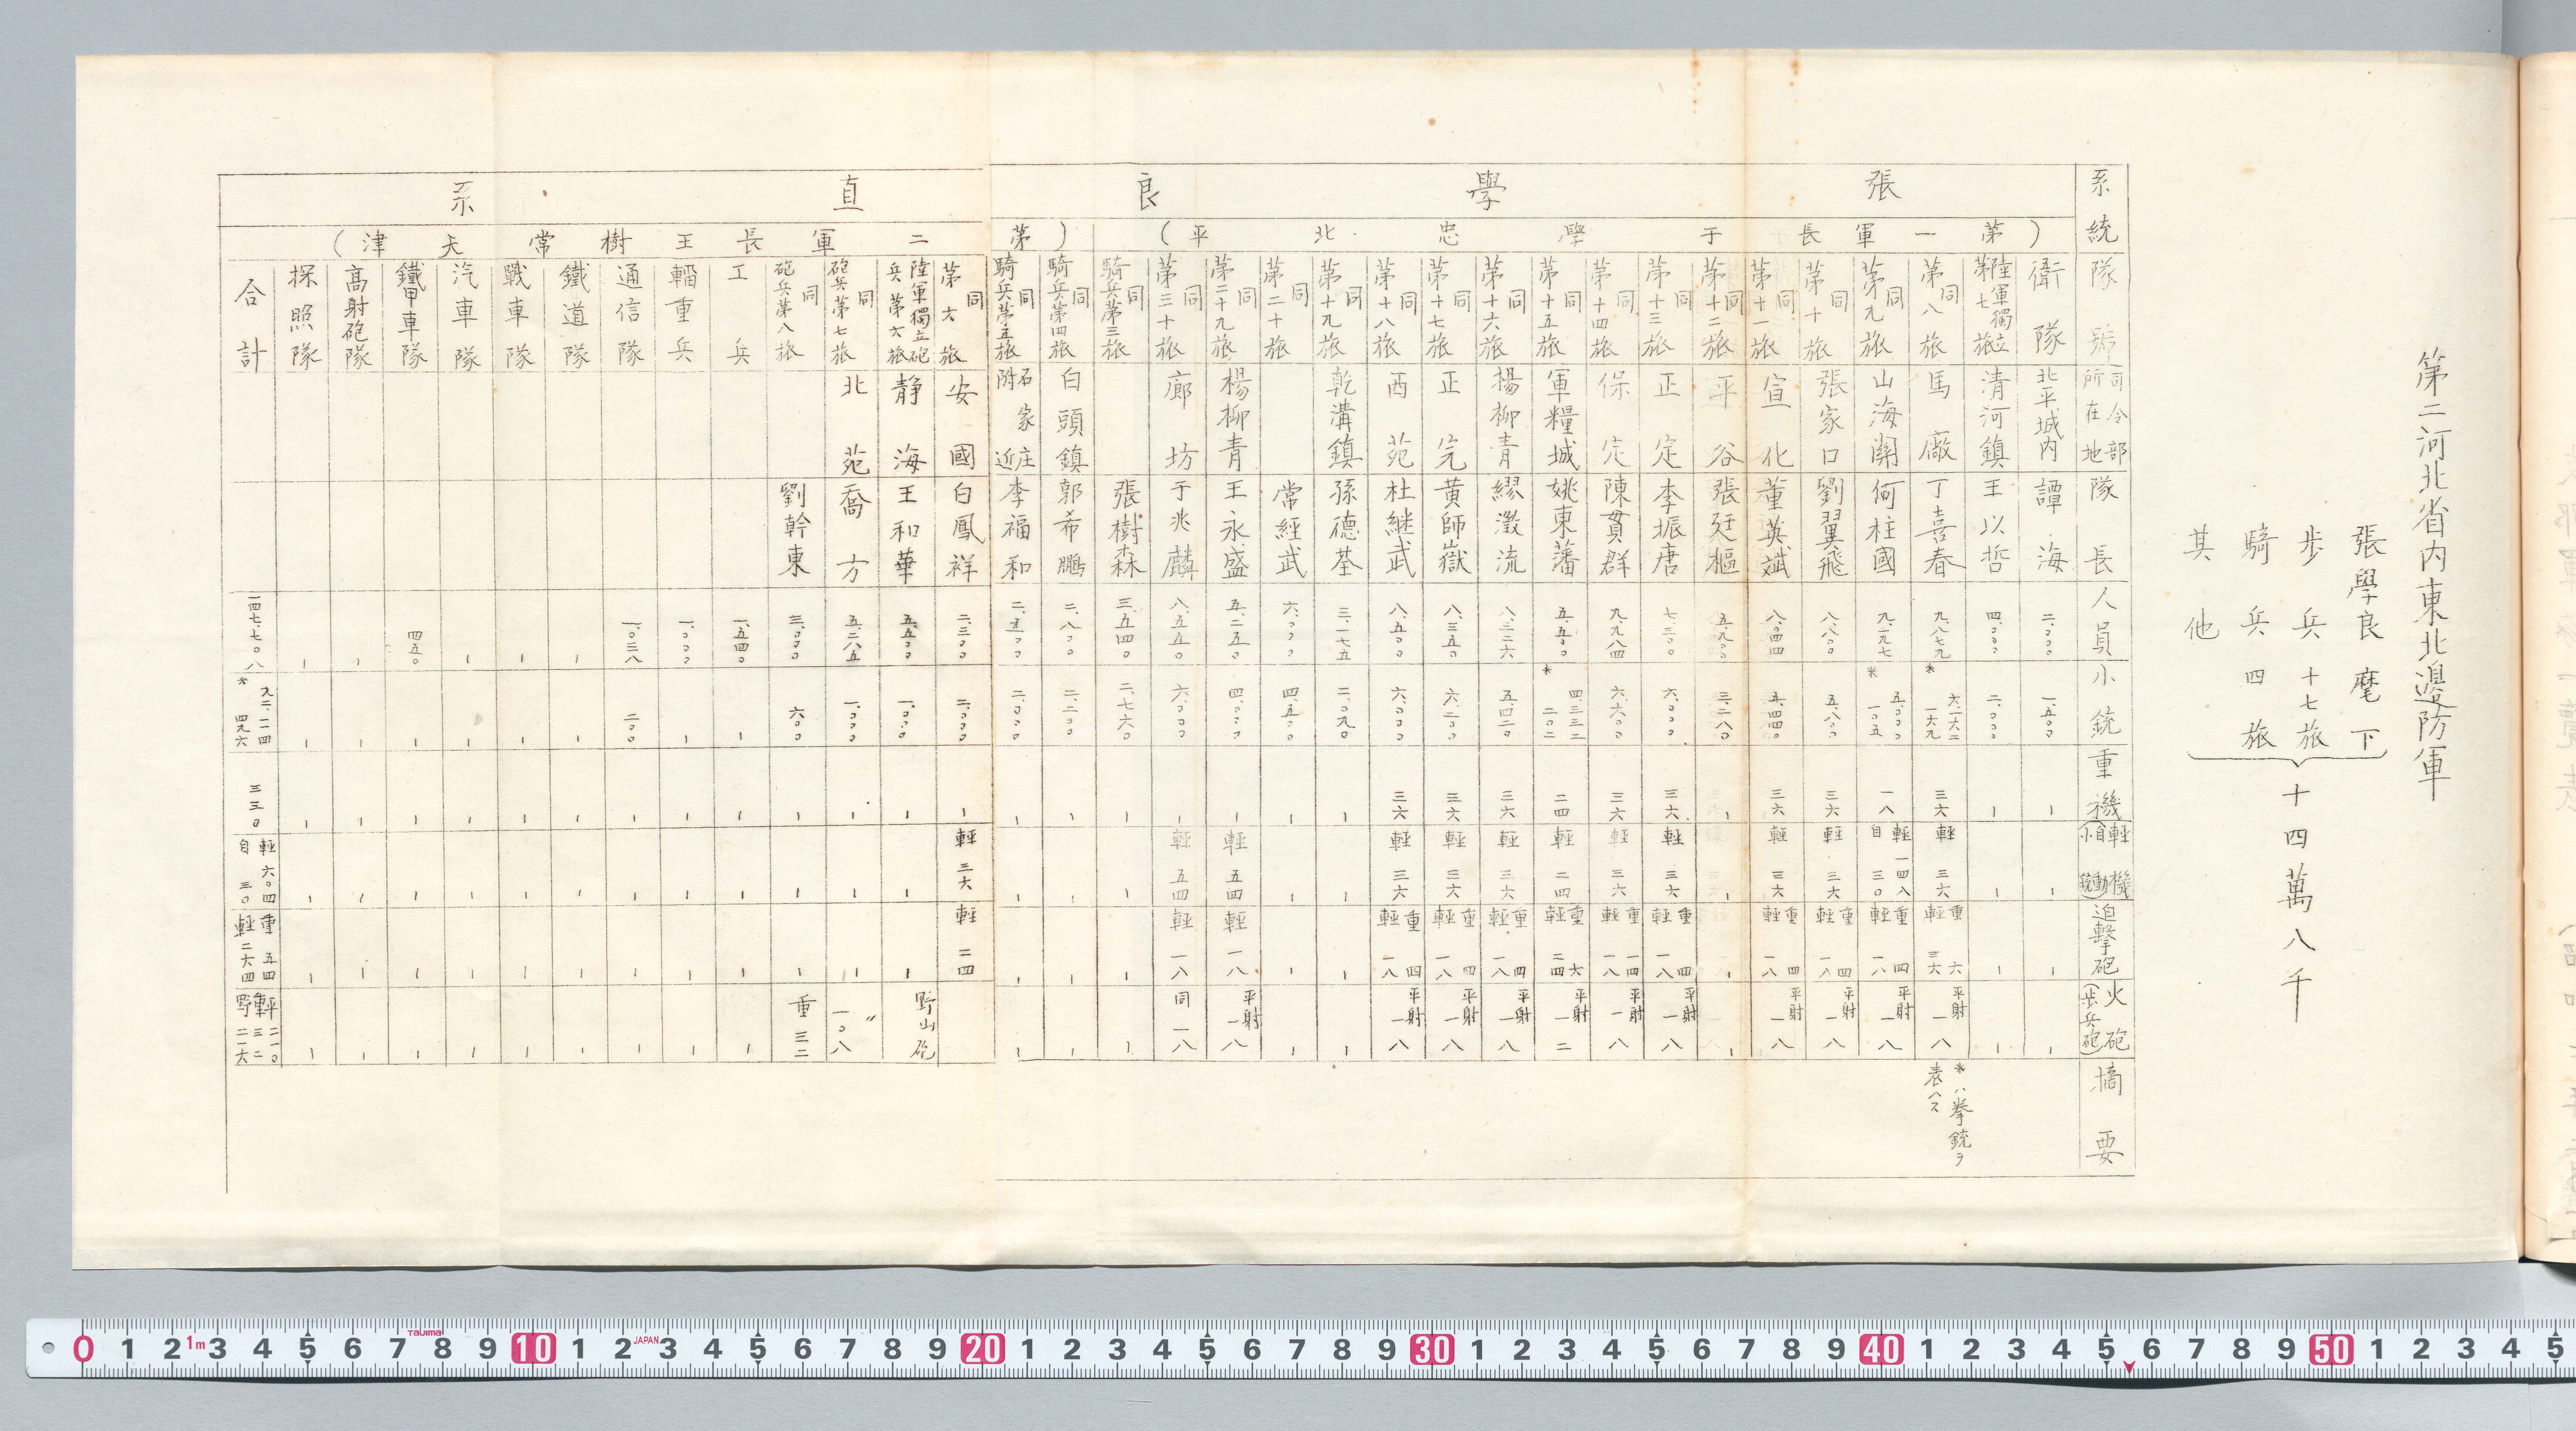 第二河北省内東北邊防軍
張學良麾下
步兵十七旅
騎兵四旅
其他
十四萬八千
系統
隊號
司令部所在地
隊長
人員
小銃
重機
輕機(自動小銃)
迫擊砲
火砲(步兵砲)
摘要
張學良直系
(第一軍長于學忠北平)
(第二軍長王樹常天津)
衛隊 北平城内 譚海 二、〇〇〇 一、五〇〇 - - - -
陸軍獨立第七旅 清河鎮 王以哲 四、〇〇〇 二、〇〇〇 - - - -
同第八旅 馬廠 丁喜春 九、八七九 六、一六二 *一六九 三六 輕三六 重六輕三六 平射一八 *ハ拳銃ヲ表ハス
同第九旅 山海關 何柱國 九、一九七 五、〇〇〇 *一〇五 一八 輕一四八自三〇 重四輕一八 平射一八
同第十旅 張家口 劉翼飛 八、八〇〇 五、八〇〇 三六 輕三六 重四輕一八 平射一八
同第十一旅 宣化 董英斌 八、〇四四 五、四四〇 三六 輕三六 重四輕一八 平射一八
同第十二旅 平谷 張廷樞 五、九〇〇 三、二八〇 - - - -
同第十三旅 正定 李振唐 七、三〇〇 六、〇〇〇 三六 輕三六 重四輕一八 平射一八
同第十四旅 保定 陳貫群 九、九八四 六、六〇〇 三六 輕三六 重一四輕一八 平射一八
同第十五旅 軍糧城 姚東藩 五、五〇〇 四、三三二 *二〇二 二四 輕二四 重六輕二四 平射一二
同第十六旅 楊柳青 繆澂流 八、三二六 五、四二〇 三六 輕三六 重四輕一八 平射一八
同第十七旅 正定 黄師嶽 八、三五〇 六、二〇〇 三六 輕三六 重四輕一八 平射一八
同第十八旅 西苑 杜継武 八、五〇〇 六、〇〇〇 三六 輕三六 重四輕一八 平射一八
同第十九旅 乾溝鎮 孫德荃 三、一七五 二、〇九〇 - - - -
同第二十旅 常經武 六、〇〇〇 四、五〇〇 - - - -
同第二十九旅 楊柳青 王永盛 五、二五〇 四、〇〇〇 - 輕五四 輕一八 平射一八
同第三十旅 廊坊 于兆麟 八、五五〇 六、〇〇〇 - 輕五四 輕一八 同一八
同騎兵第三旅 張樹森 三、五四〇 二、七六〇 - - - -
同騎兵第四旅 白頭鎮 郭希鵬 二、八〇〇 二、二〇〇 - - - -
同騎兵第五旅 石家庄附近 李福和 二、五〇〇 二、〇〇〇 - - - -
同第六旅 安國 白鳳祥 二、三〇〇 二、〇〇〇 - 輕三六 輕二四
陸軍獨立砲兵第六旅 靜海 王和華 五、五〇〇 一、〇〇〇 - - - 野山砲
同砲兵第七旅 北苑 喬方 五、二六五 一、〇〇〇 - - - 〃一〇八
同砲兵第八旅 劉幹東 三、〇〇〇 六〇〇 - - - 重三二
工兵 一、五四〇 - - - - -
輜重兵 一、〇〇〇 - - - - -
通信隊 一、〇三八 二〇〇 - - - -
鐵道隊 - - - - - -
戰車隊 - - - - - -
汽車隊 - - - - - -
鐵甲車隊 四五〇 - - - - -
高射砲隊 - - - - - -
探照隊 - - - - - -
合計 一四七、七〇八 九二、一一四 *四九六 三三〇 輕六〇四自三〇 重五四輕二六四 平二一〇重三二野二一六